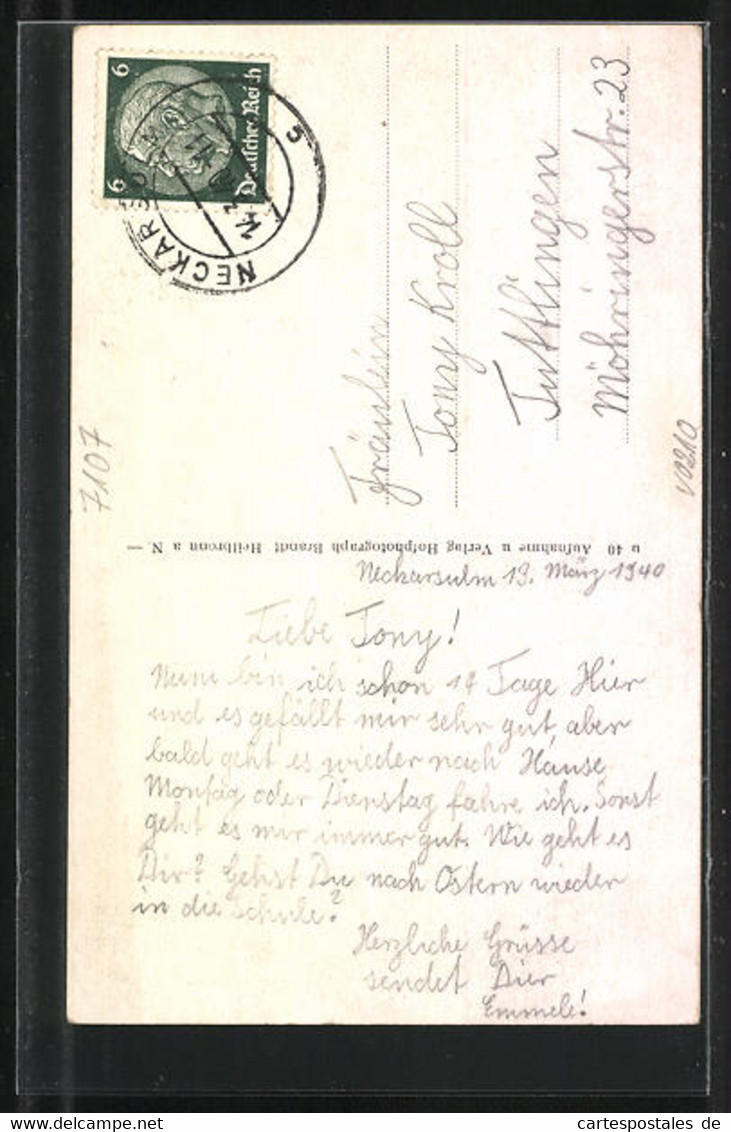 6
6
Deutsches Reich
NECKARSULM
Fräulein
Tony Kroll
Tuttlingen
Möhringerstr. 23
7107
v0210
u 40 Aufnahme u Verlag Hofphotograph Brandt Heilbronn a N. —
Neckarsulm 19. März 1940
Liebe Tony!
Nunu bin ich schon 14 Tage Hier
und es gefällt mir sehr gut, aber
bald geht es wieder nach Hause
Montag oder Dienstag fahre ich. Sonst
geht es mir immer gut. Wie geht es
Dir? Gehst Du nach Ostern wieder
in die Schule?
Herzliche Grüsse
sendet Dier
Emmele!
www.delcampe.net
cartespostales de